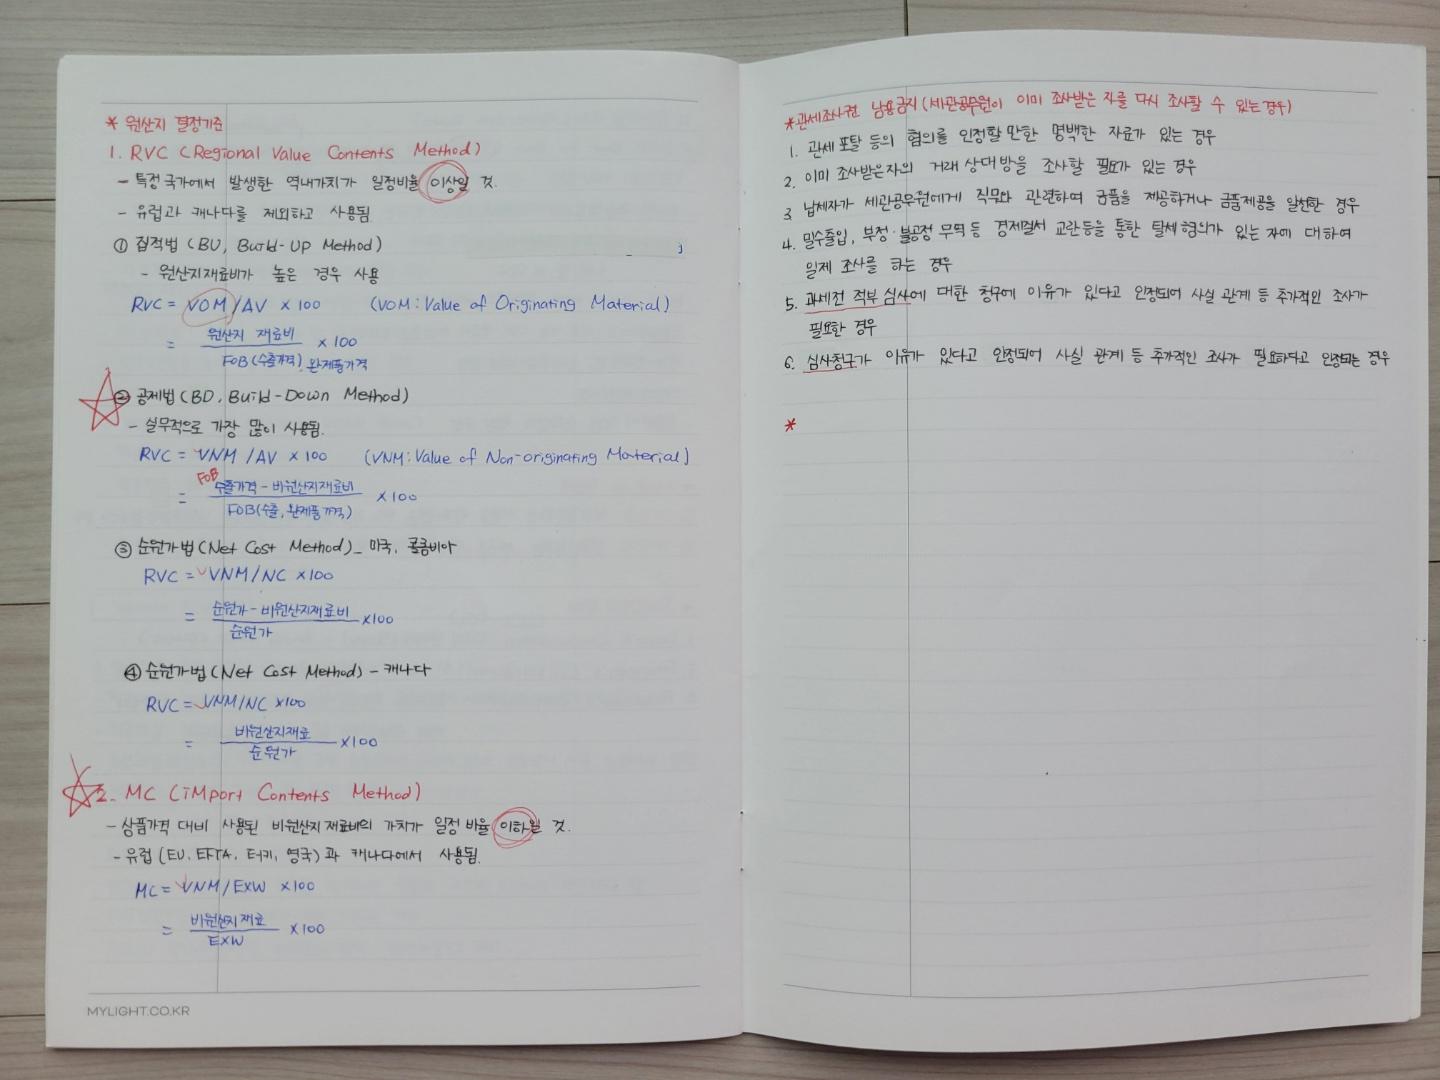 * 원산지 결정기준
1. RVC (Regional Value Contents Method)
- 특정국가에서 발생한 역내가치가 일정비율 이상일 것.
- 유럽과 캐나다를 제외하고 사용됨
① 집적법 (BU, Build-UP Method)
- 원산지재료비가 높은 경우 사용
RVC = VOM/AV × 100 (VOM: Value of Originating Material)
= 원산지 재료비 × 100
FOB(수출가격), 완제품가격
② 공제법 (BD, Build-Down Method)
- 실무적으로 가장 많이 사용됨.
RVC = VNM/AV × 100 (VNM: Value of Non-originating Material)
FOB
= 수출가격 - 비원산지재료비 × 100
FOB(수출, 완제품가격)
③ 순원가법 (Net Cost Method) - 미국, 콜롬비아
RVC = VNM/NC × 100
= 순원가 - 비원산지재료비 × 100
순원가
④ 순원가법 (Net Cost Method) - 캐나다
RVC = VNM/NC × 100
= 비원산지재료 × 100
순원가
2. MC (iMport Contents Method)
- 상품가격 대비 사용된 비원산지재료비의 가치가 일정비율 이하일 것.
- 유럽 (EU, EFTA, 터키, 영국)과 캐나다에서 사용됨.
MC = VNM/EXW × 100
= 비원산지재료 × 100
EXW
MYLIGHT.CO.KR
* 관세조사권 남용금지 (세관공무원이 이미 조사받은 자를 다시 조사할 수 있는 경우)
1. 관세 포탈 등의 혐의를 인정할 만한 명백한 자료가 있는 경우
2. 이미 조사받은자의 거래 상대방을 조사할 필요가 있는 경우
3 납세자가 세관공무원에게 직무와 관련하여 금품을 제공하거나 금품제공을 알선한 경우
4. 밀수출입, 부정·불공정 무역 등 경제질서 교란등을 통한 탈세혐의가 있는 자에 대하여
일제 조사를 하는 경우
5. 과세전 적부 심사에 대한 청구에 이유가 있다고 인정되어 사실 관계 등 추가적인 조사가
필요한 경우
6. 심사청구가 이유가 있다고 인정되어 사실 관계 등 추가적인 조사가 필요하다고 인정되는 경우
*